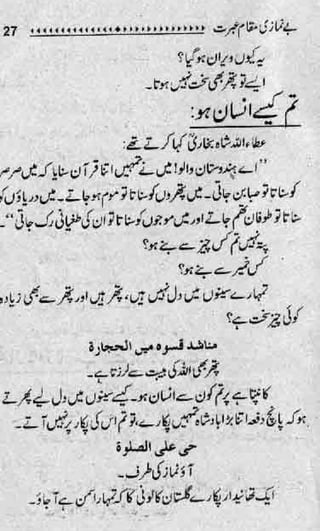 بے نمازی مقام عبرت 27
یہ کیوں ویران ہو گیا؟
ایسے تو پتھر بھی سخت نہیں ہوتا۔
تم کیسے انسان ہو:
عطاء اللہ شاہ بخاریؒ کہا کرتے تھے:
"اے ہندوستان والو! میں نے تمہیں اتنا قرآن سنایا کہ میں صرصر
کو سناتا تو صبا بن جاتی۔ میں پتھروں کو سناتا تو موم ہو جاتے۔ میں دریاؤں کو
سناتا تو طوفان تھم جاتے اور میں موجوں کو سناتا تو ان کی طغیانی رک جاتی"۔
پتہ نہیں تم کس چیز سے بنے ہو؟
کس خمیر سے بنے ہو؟
تمہارے سینوں میں دل نہیں ہیں، پتھر ہیں اور پتھر سے بھی زیادہ
کوئی چیز سخت ہے؟
مناشد قسوہ میں الحجارة
پتھر بھی اللہ کی ہیبت سے لرزتا ہے۔
کانپتا ہے پر تم کون سے انسان ہو۔ کیسے سینوں میں دل لیے پھرتے
ہو کہ پانچ دفعہ اتنا بڑا بادشاہ تمہیں پکارے، تو تم اس کی پکار پر نہیں آتے۔
حی علی الصلوة
آؤ نماز کی طرف۔
ایک تھانیدار پکارے گلستان کالونی کا کہ تمہارا سمن ہے آ جاؤ۔